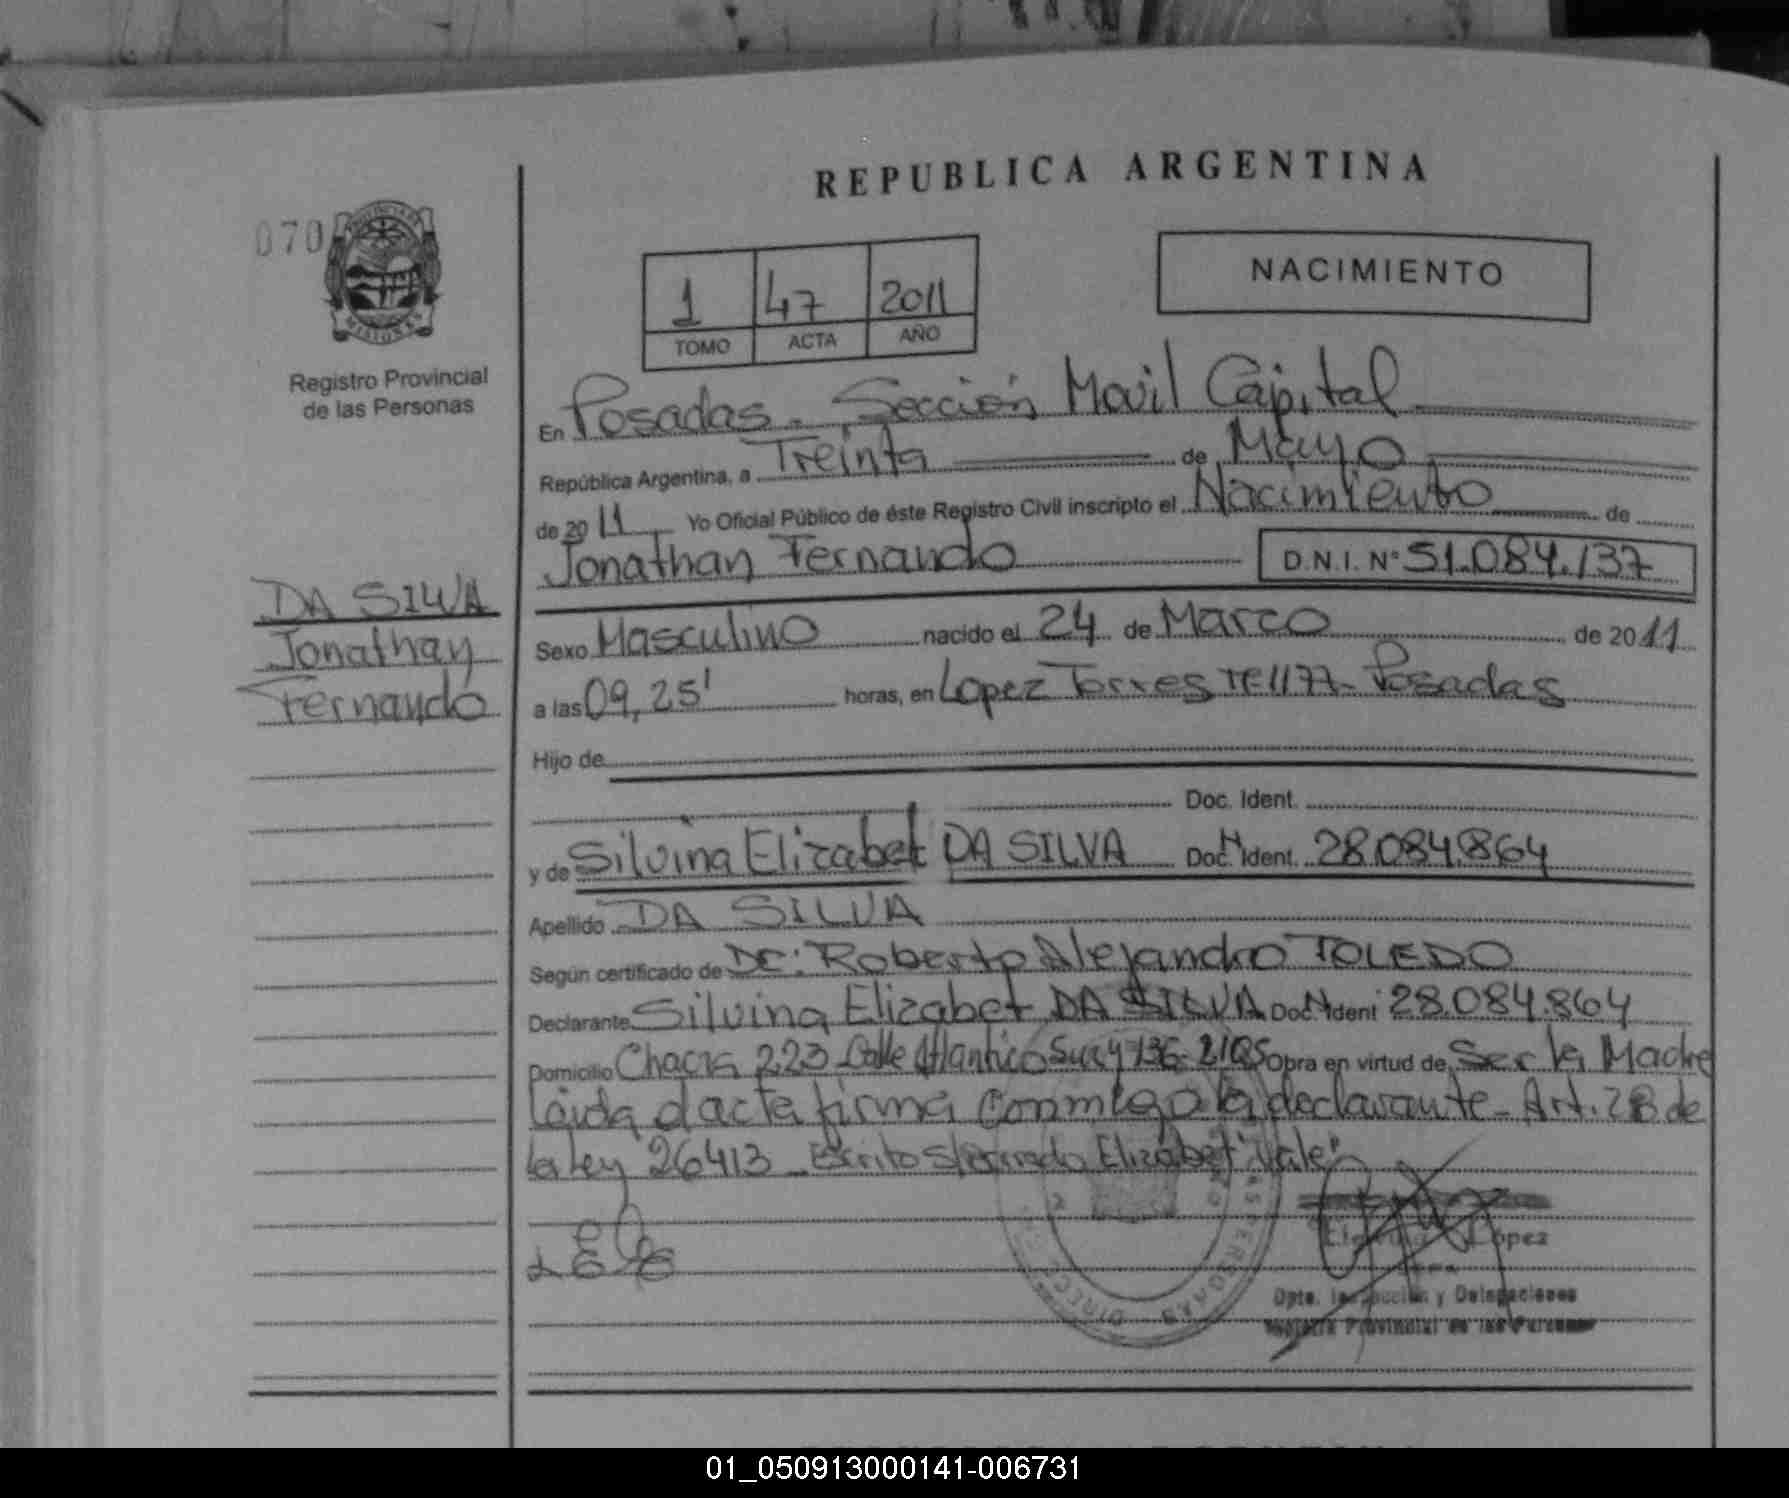 REPUBLICA ARGENTINA
070
PROVINCIA DE
MISIONES
Registro Provincial
de las Personas
NACIMIENTO
1 47 2011
TOMO ACTA AÑO
En Posadas. Sección Movil Capital
República Argentina, a Treinta de Mayo
de 2011 Yo Oficial Público de éste Registro Civil inscripto el Nacimiento de
Jonathan Fernando D.N.I. Nº 51.084.137
DA SILVA
Jonathan
Fernando
Sexo Masculino nacido el 24 de Marzo de 2011
a las 09,25' horas, en Lopez Torres 1177- Posadas
Hijo de
Doc. Ident.
y de Silvina Elizabet DA SILVA Doc. Ident. 28.084.864
Apellido DA SILVA
Según certificado de Dr: Roberto Alejandro TOLEDO
Declarante Silvina Elizabet DA SILVA Doc. Ident 28.084.864
Domicilio Chacra 223 Calle Atlantico Sur y 136- Obra en virtud de Ser la Madre
Leida el acta firma conmigo la declarante- Art. 28 de
la ley 26413 Escrito s/borrado Elizabet "Vale"
López
Dpto. Inspección y Delegaciones
Registro Provincial de las Personas
01_050913000141-006731